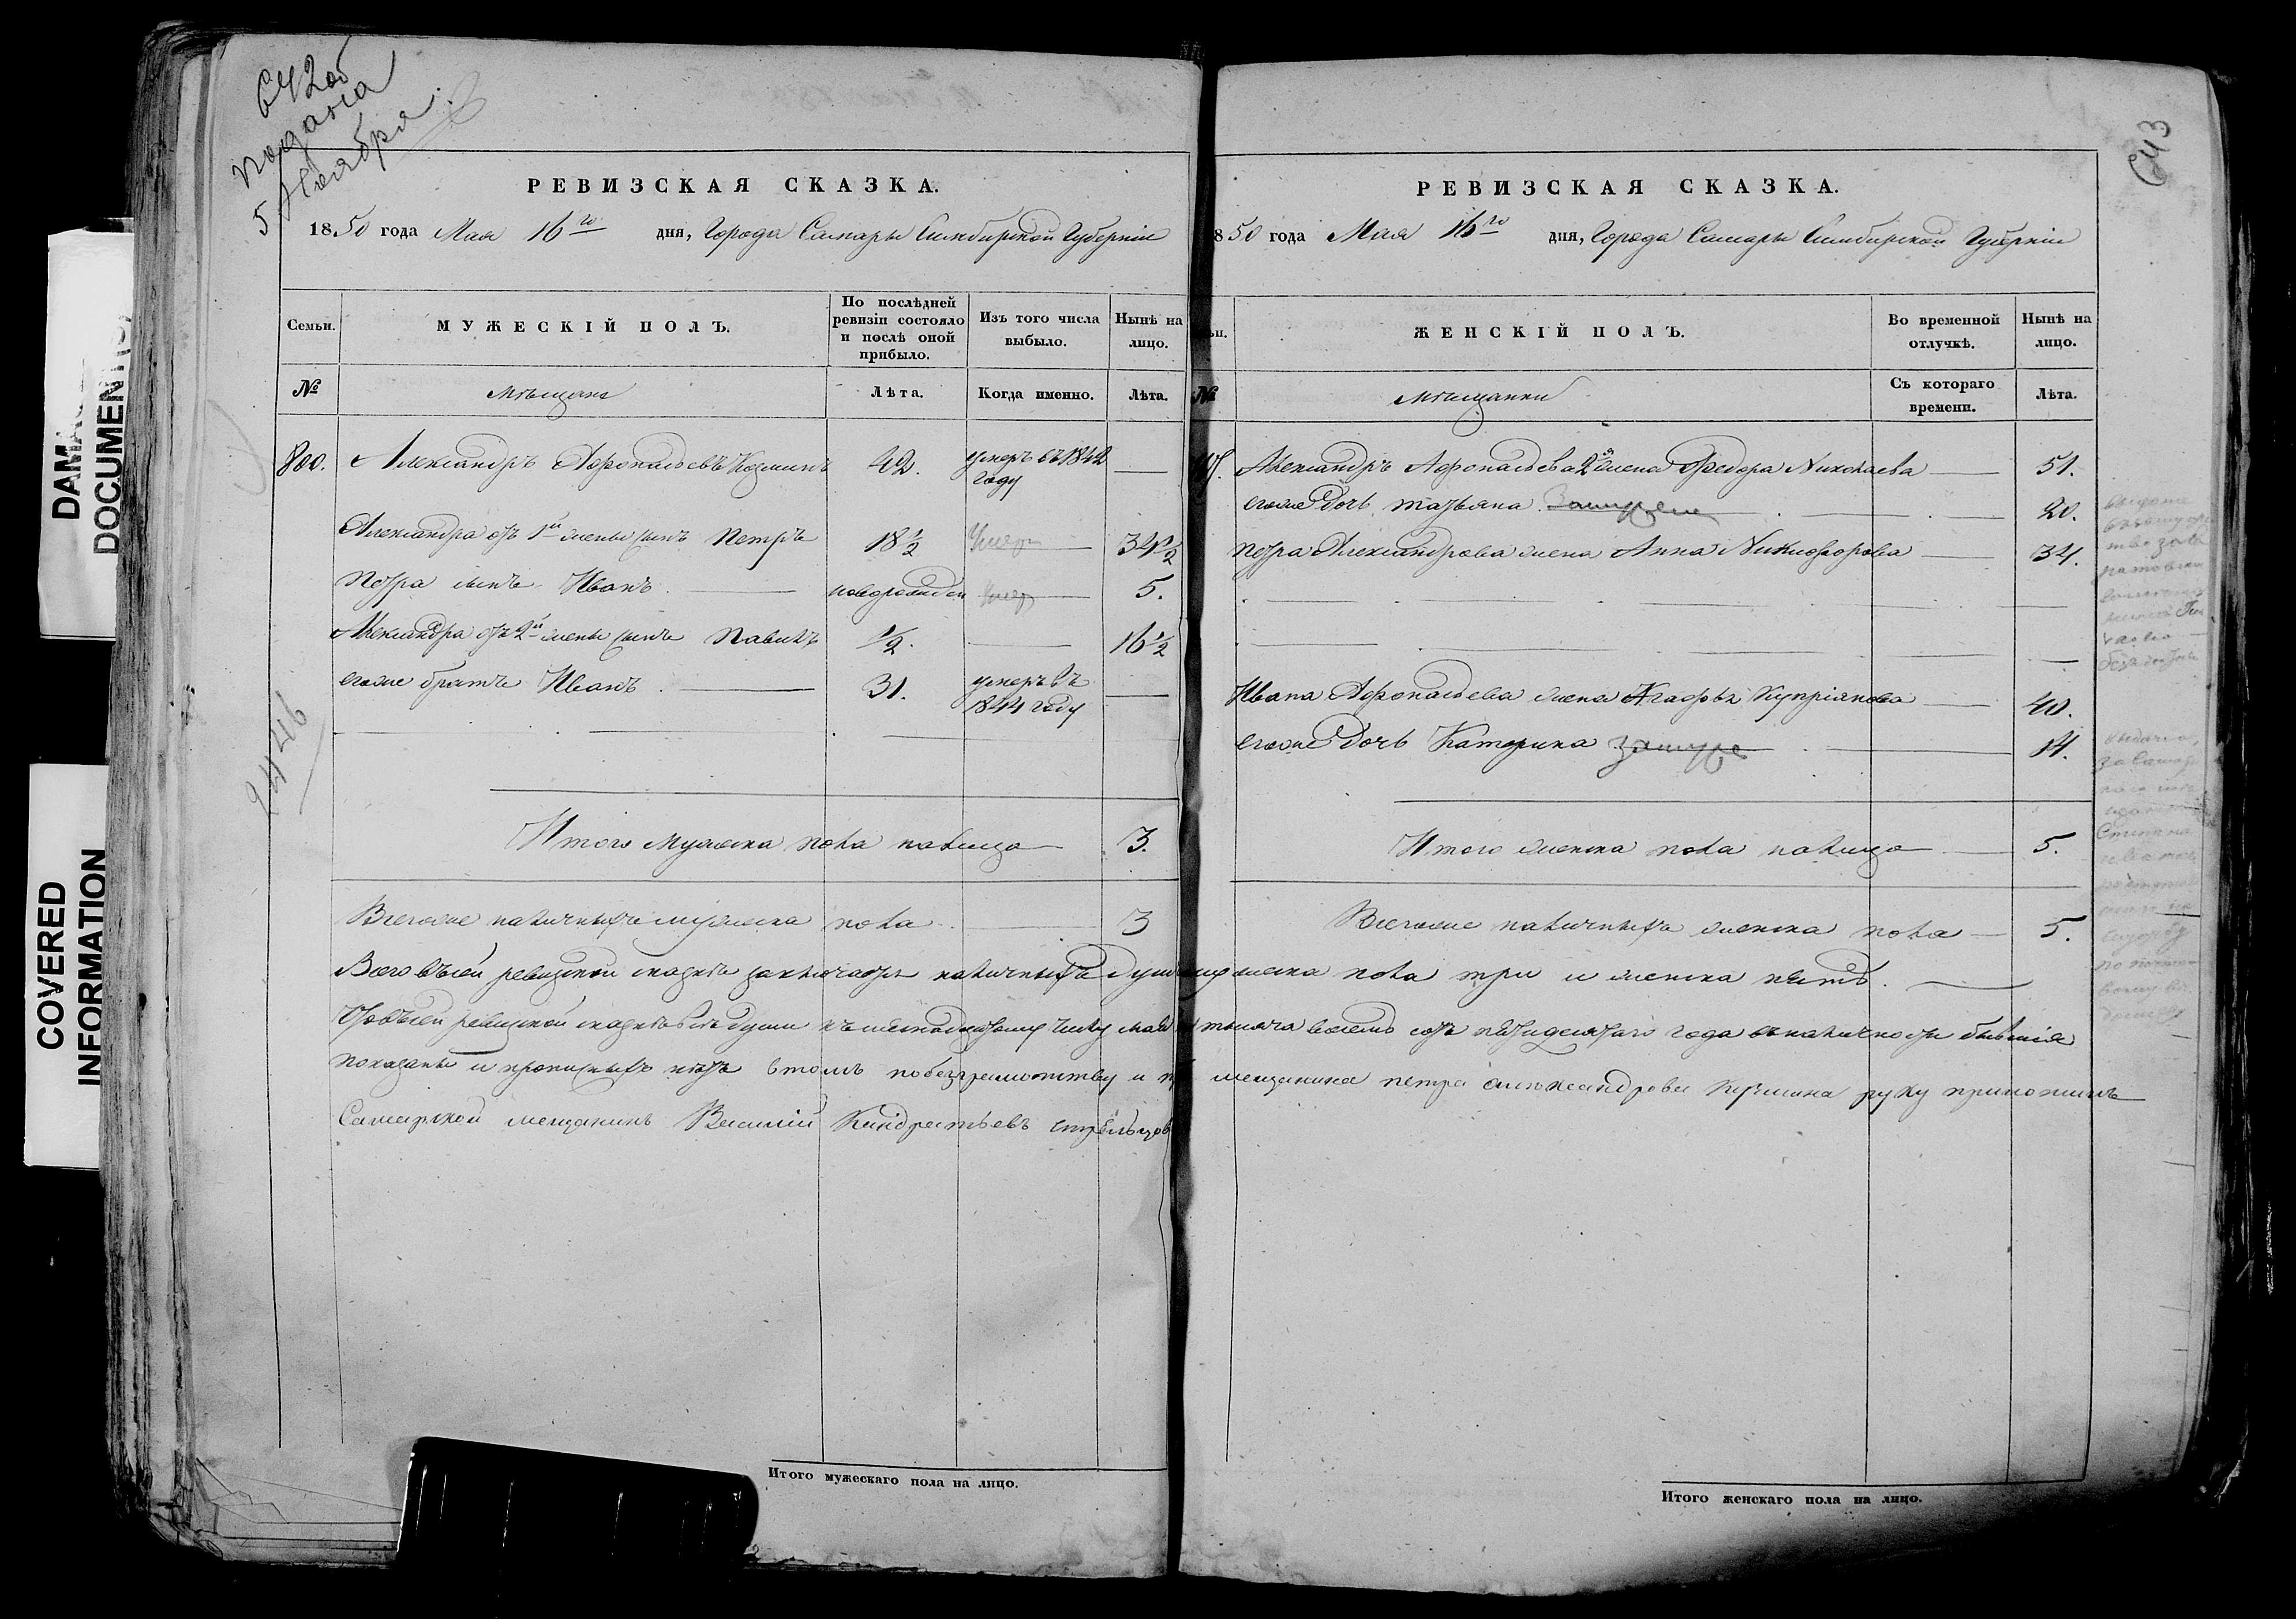 642 об
подана
5 Ноября
643
DAMA
DOCUMENT(S)
COVERED
INFORMATION
РЕВИЗСКАЯ СКАЗКА.
1850 года Мая 16го дня, Города Самары Симбирской Губернии
Семьи. МУЖЕСКІЙ ПОЛЪ. По послѣдней ревизіи состояло и послѣ оной прибыло. Изъ того числа выбыло. Нынѣ на лицо.
№ мѣщане Лѣта. Когда именно. Лѣта.
800. Александръ Афонасьевъ Козминъ 42. умеръ въ 1842 году —
Александра отъ 1й жены сынъ Петръ 18 1/2 умеръ 34 1/2
Петра сынъ Иванъ новорожден умер 5.
Александра отъ 2й жены сынъ Павилъ 1/2. — 16 1/2
егоже братъ Иванъ 31. умеръ въ 1844 году —
Итого мужеска пола налицо 3.
Всегоже наличныхъ мужеска пола 3
РЕВИЗСКАЯ СКАЗКА.
850 года Мая 16го дня, Города Самары Симбирской Губерніи
ьи. ЖЕНСКІЙ ПОЛЪ. Во временной отлучкѣ. Нынѣ на лицо.
№ мѣщанки Съ котораго времени. Лѣта.
Александръ Афонасьева 2я жена Федора Николаева — 51.
егоже дочь татьяна Замужем — 20.
Петра Александрова жена Анна Никифорова — 34.
Ивана Афонасьева жена Агафья Купріянова — 40.
егоже дочь Катерина замуже — 14.
Итого женска пола налицо — 5.
Всегоже наличныхъ женска пола — 5.
Всего въсей ревизской сказкѣ заключается наличныхъ душъ мужеска пола три и женска пять.
Что въсей ревизской сказкѣ всѣ души къ шестнадцатому числу мая тысяча восемь сотъ пятидесятаго года въ наличности бывшія
показаны и прописныхъ нѣтъ в томъ побезграмотству и мещанина петра александрова Козмина руку приложилъ
Самарской мещанинъ Василий Кандратьевъ стрельцов
2426
Итого мужескаго пола на лицо.
Итого женскаго пола на лицо.